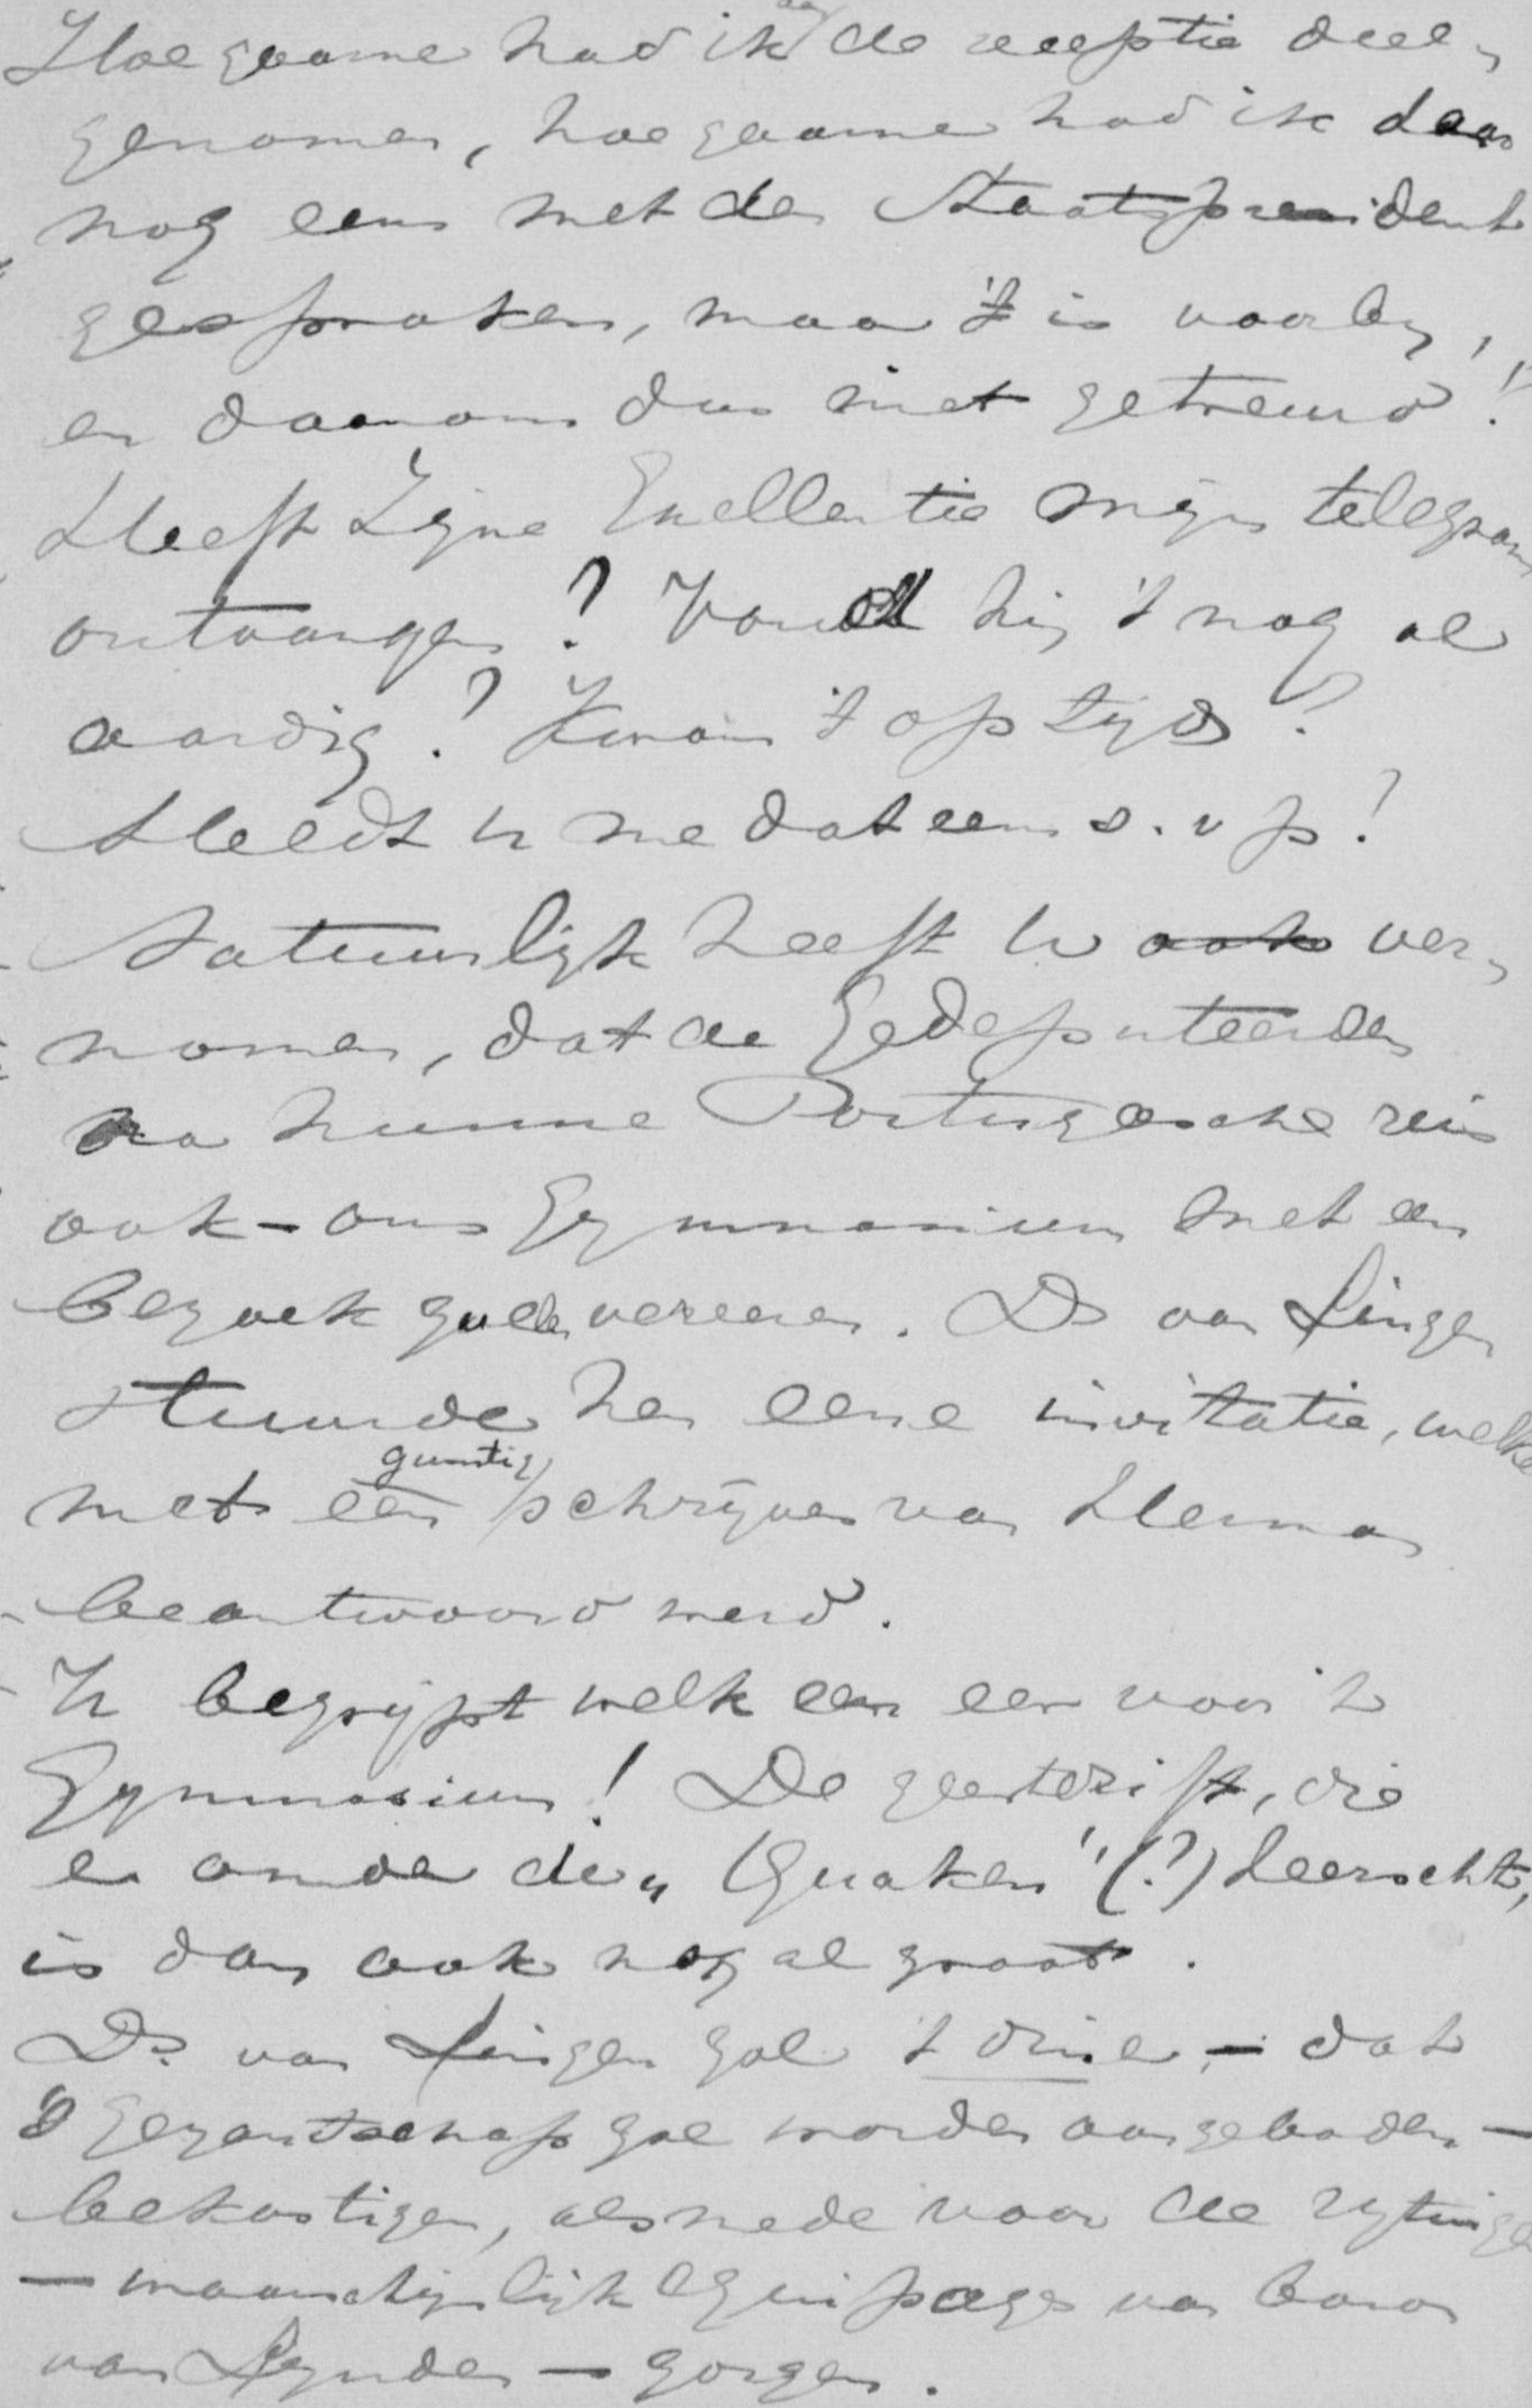 Hoe gaarne had ik aan de receptie deel-
genomen, hoe gaarne had ik daar
nog eens met den Staatspresident
gesproken, maar 't is voorby,
en daarom dus niet getreurd!!
Heeft Zyne Excellentie mijn telegram
ontvangen? Vond hij 't nog al
aardig? Kwam 't op tijd?
Meldt U me dat eens s.v.p!
Natuurlijk heeft U ook ver-
nomen, dat de Gedeputeerden
na hunne Portugeesche reis
ook - ons Gymnasium met een
bezoek zullen vereeren. Ds van Lingen
stuurde hen eene invitatie, welke
met een gunstig schrijven van Herman
beantwoord werd.
U begrijpt welk een eer voor 't
Gymnasium! De geestdrift, die
er onder de „Quaken" (?) heerscht,
is dan ook nog al groot.
Ds. van Lingen zal 't diner, - dat
't Gezantschap zal worden aangeboden -
bekostigen, alsmede voor de rytuigen
- waarschijnlijk equipages van baron
van Lynden - zorgen.